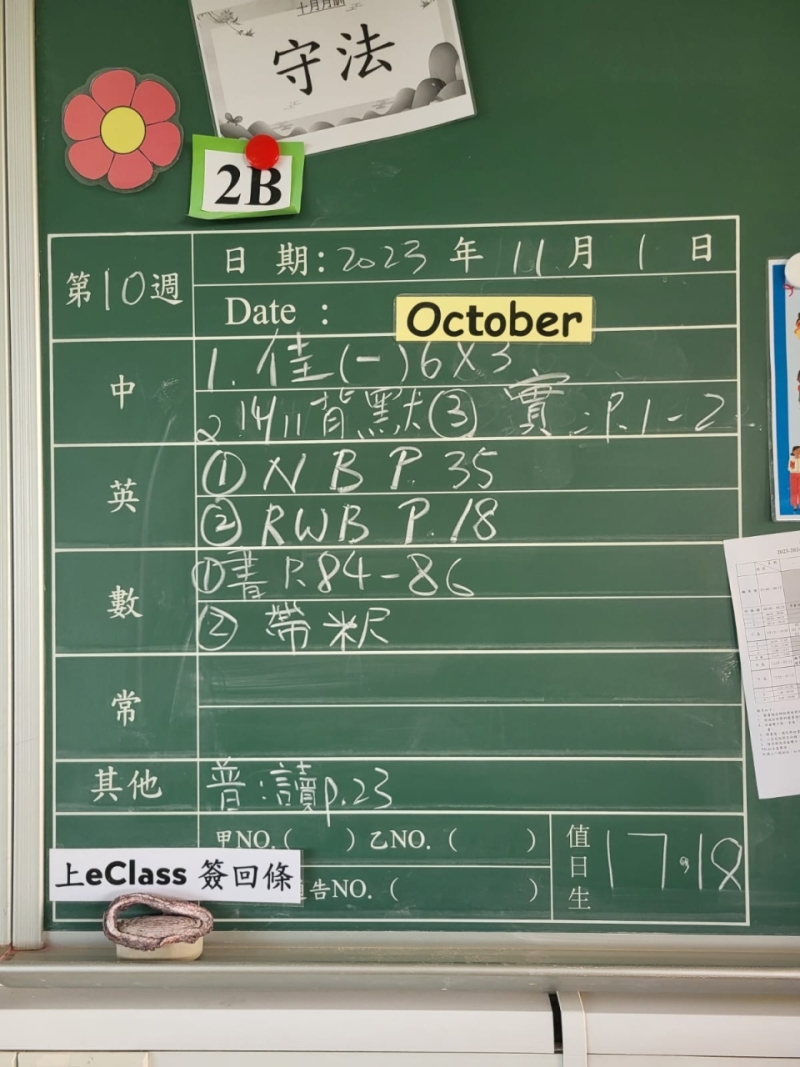 守法
2B
第10週
日期：2023年11月1日
Date：
October
中
1. 佳(一)6×3
2. 14/11背默③實：P.1-2
英
① N B P. 35
② RWB P. 18
數
①書P.84-86
② 帶米尺
常
其他
普：讀p.23
甲NO.(　　) 乙NO.(　　)
告NO.(　　)
值日生
17,18
上eClass 簽回條